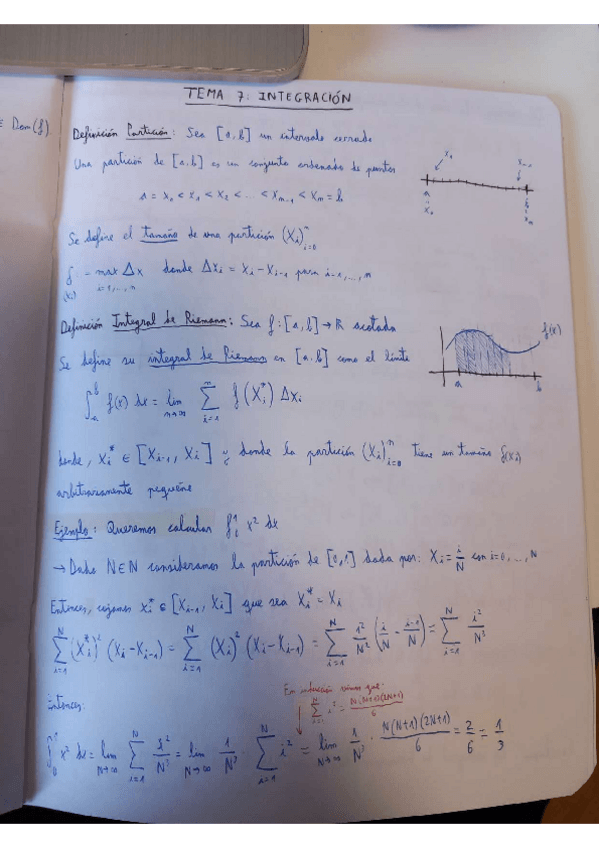 ∈ Dom(f).
TEMA 7: INTEGRACIÓN
Definición Partición: Sea [a,b] un intervalo cerrado
Una partición de [a,b] es un conjunto ordenado de puntos
a = x₀ < x₁ < x₂ < ... < xₙ₋₁ < xₙ = b
x₁ xₙ₋₁
a b
x₀ xₙ
Se define el tamaño de una partición (Xᵢ)ⁿᵢ₌₀
δ(xᵢ) = max_{i=1,...,n} Δx donde Δxᵢ = xᵢ - xᵢ₋₁ para i=1,...,n
Definición Integral de Riemann: Sea f: [a,b] → ℝ acotada
Se define su integral de Riemann en [a,b] como el límite
f(x)
a b
∫ₐᵇ f(x) dx = lim_{n→∞} Σ_{i=1}^{n} f(Xᵢ*) Δxᵢ
donde, xᵢ* ∈ [Xᵢ₋₁, Xᵢ] y donde la partición (Xᵢ)ⁿᵢ₌₀ tiene un tamaño δ(xᵢ)
arbitrariamente pequeño
Ejemplo: Queremos calcular ∫₀¹ x² dx
→ Dado N∈ℕ consideramos la partición de [0,1] dada por: Xᵢ = i/N con i=0,...,N
Entonces, cojamos xᵢ* ∈ [Xᵢ₋₁, Xᵢ] que sea Xᵢ* = Xᵢ
Σ_{i=1}^{N} (Xᵢ*)² (Xᵢ-Xᵢ₋₁) = Σ_{i=1}^{N} (Xᵢ)² (Xᵢ-Xᵢ₋₁) = Σ_{i=1}^{N} i²/N² (i/N - i-1/N) = Σ_{i=1}^{N} i²/N³
En inducción vimos que:
Σ_{i=1}^{N} i² = N(N+1)(2N+1)/6
Entonces:
∫₀¹ x² dx = lim_{N→∞} Σ_{i=1}^{N} i²/N³ = lim_{N→∞} 1/N³ · Σ_{i=1}^{N} i² = lim_{N→∞} 1/N³ · N(N+1)(2N+1)/6 = 2/6 = 1/3